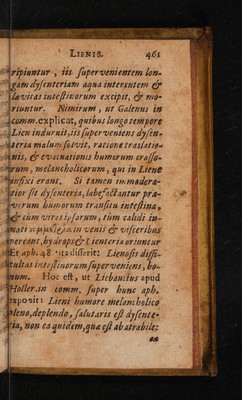 LIENIS. 461
ripiuntur, iis supervenientem lon-
gam dysenteriam aqua intercutem &
lævitas intestinorum excipit, & mo-
riuntur. Nimirum, ut Galenus in
comm. explicat, quibus longo tempore
Lien induruit, iis superveniens dysen-
teria malum solvit, ratione traslatio-
nis, & evacuationis humorum crasso-
rum, melancholicorum, qui in Liene
infixi erant. Si tamen immodera-
tior sit dysenteria, labefactantur pra-
verum humorum transitu intestina,
& cùm vires ipsorum, tùm calidi in-
nati in venis & visceribus
pereant, hydrops & Lienteria oriuntur
Et aph. 48 ita disserit: Lienosis diffi-
cultas intestinorum superveniens, bo-
num. Hoc est, ut Liebautius apud
Holler. in comm. super hunc aph.
exposuit: Lieni humore melancholico
pleno, deplendo, salutaris est dysente-
ria, non ea quidem, quæ est ab atrabile:
ea